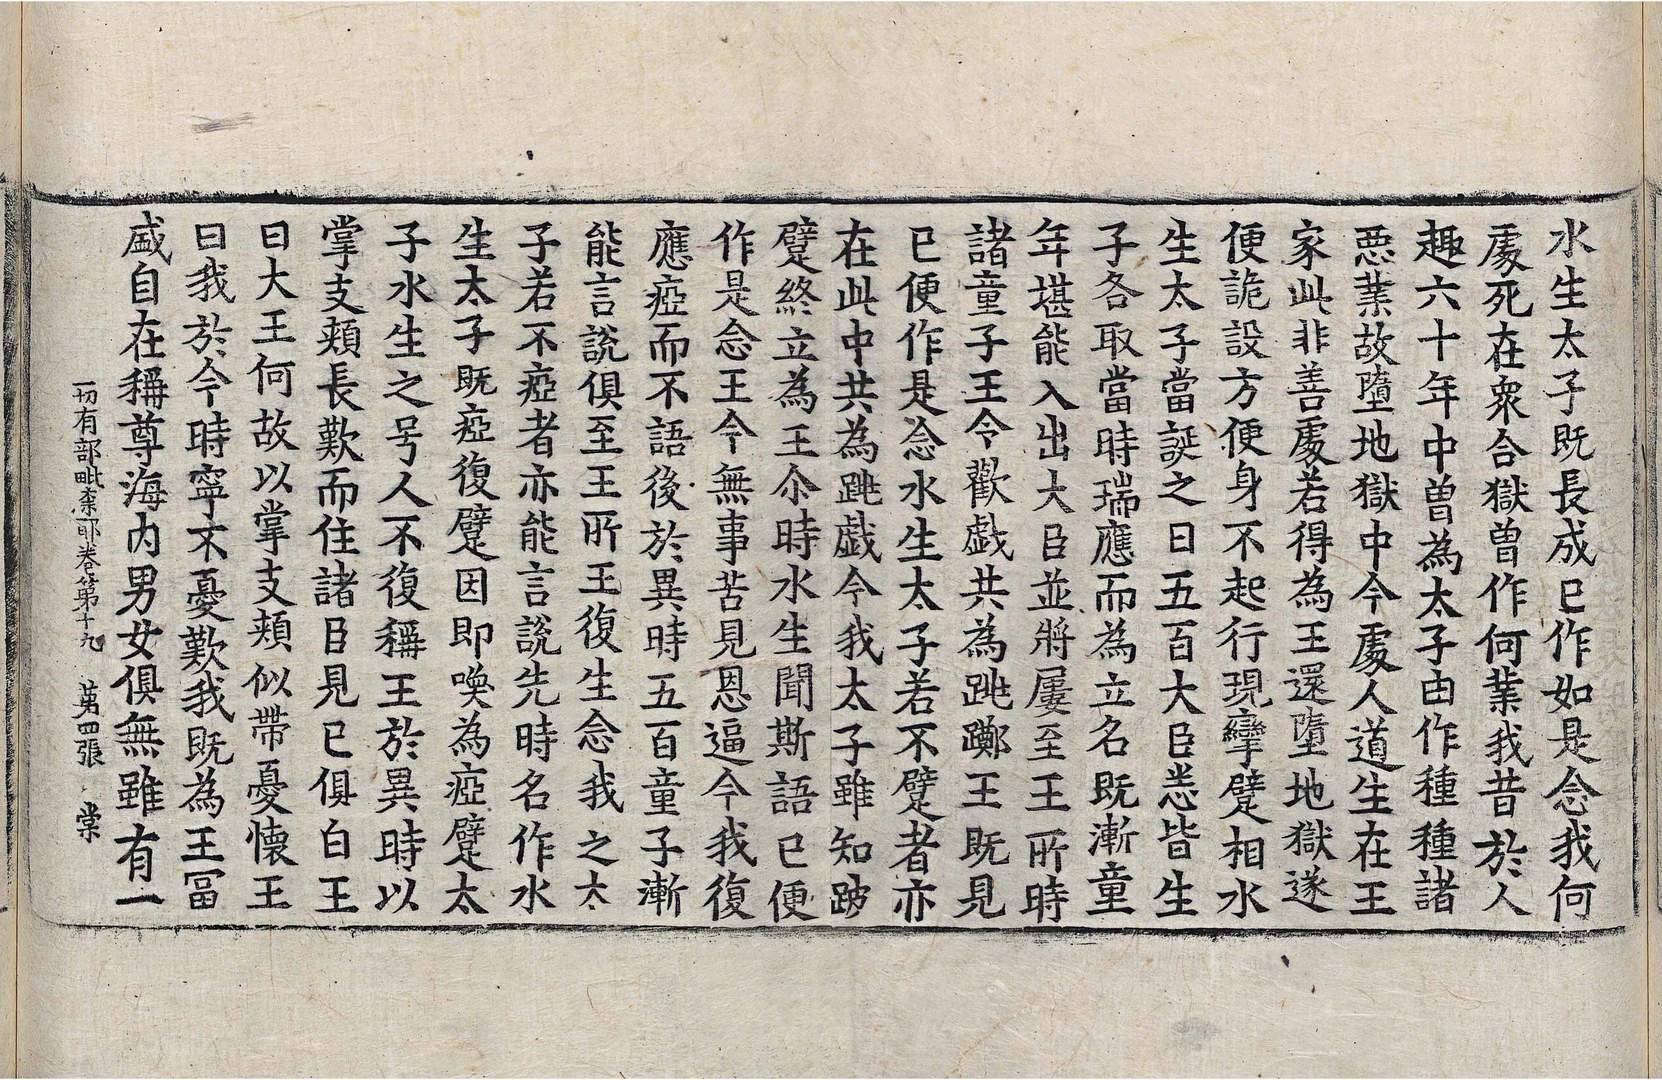 水生太子既長成已作如是念我何
處死在衆合獄曾作何業我昔於人
趣六十年中曽為太子由作種種諸
惡業故墮地獄中今處人道生在王
家此非善處若得為王還墮地獄遂
便詭設方便身不起行現攣躄相水
生太子當誕之日五百大臣悉皆生
子各取當時瑞應而為立名既漸童
年堪能入出大臣並將屢至王所時
諸童子王令歡戲共為跳躑王既見
已便作是念水生太子若不躄者亦
在此中共為跳戲今我太子雖知跛
躄終立為王尒時水生聞斯語已便
作是念王今無事苦見恩逼今我復
應瘂而不語後於異時五百童子漸
能言說俱至王所王復生念我之太
子若不瘂者亦能言說先時名作水
生太子既瘂復躄因即喚為瘂躄太
子水生之号人不復稱王於異時以
掌支頰長歎而住諸臣見已俱白王
曰大王何故以掌支頰似帶憂懷王
曰我於今時寧不憂歎我既為王冨
盛自在稱尊海内男女俱無雖有一
一切有部毗柰耶卷第十九 第四張 棠